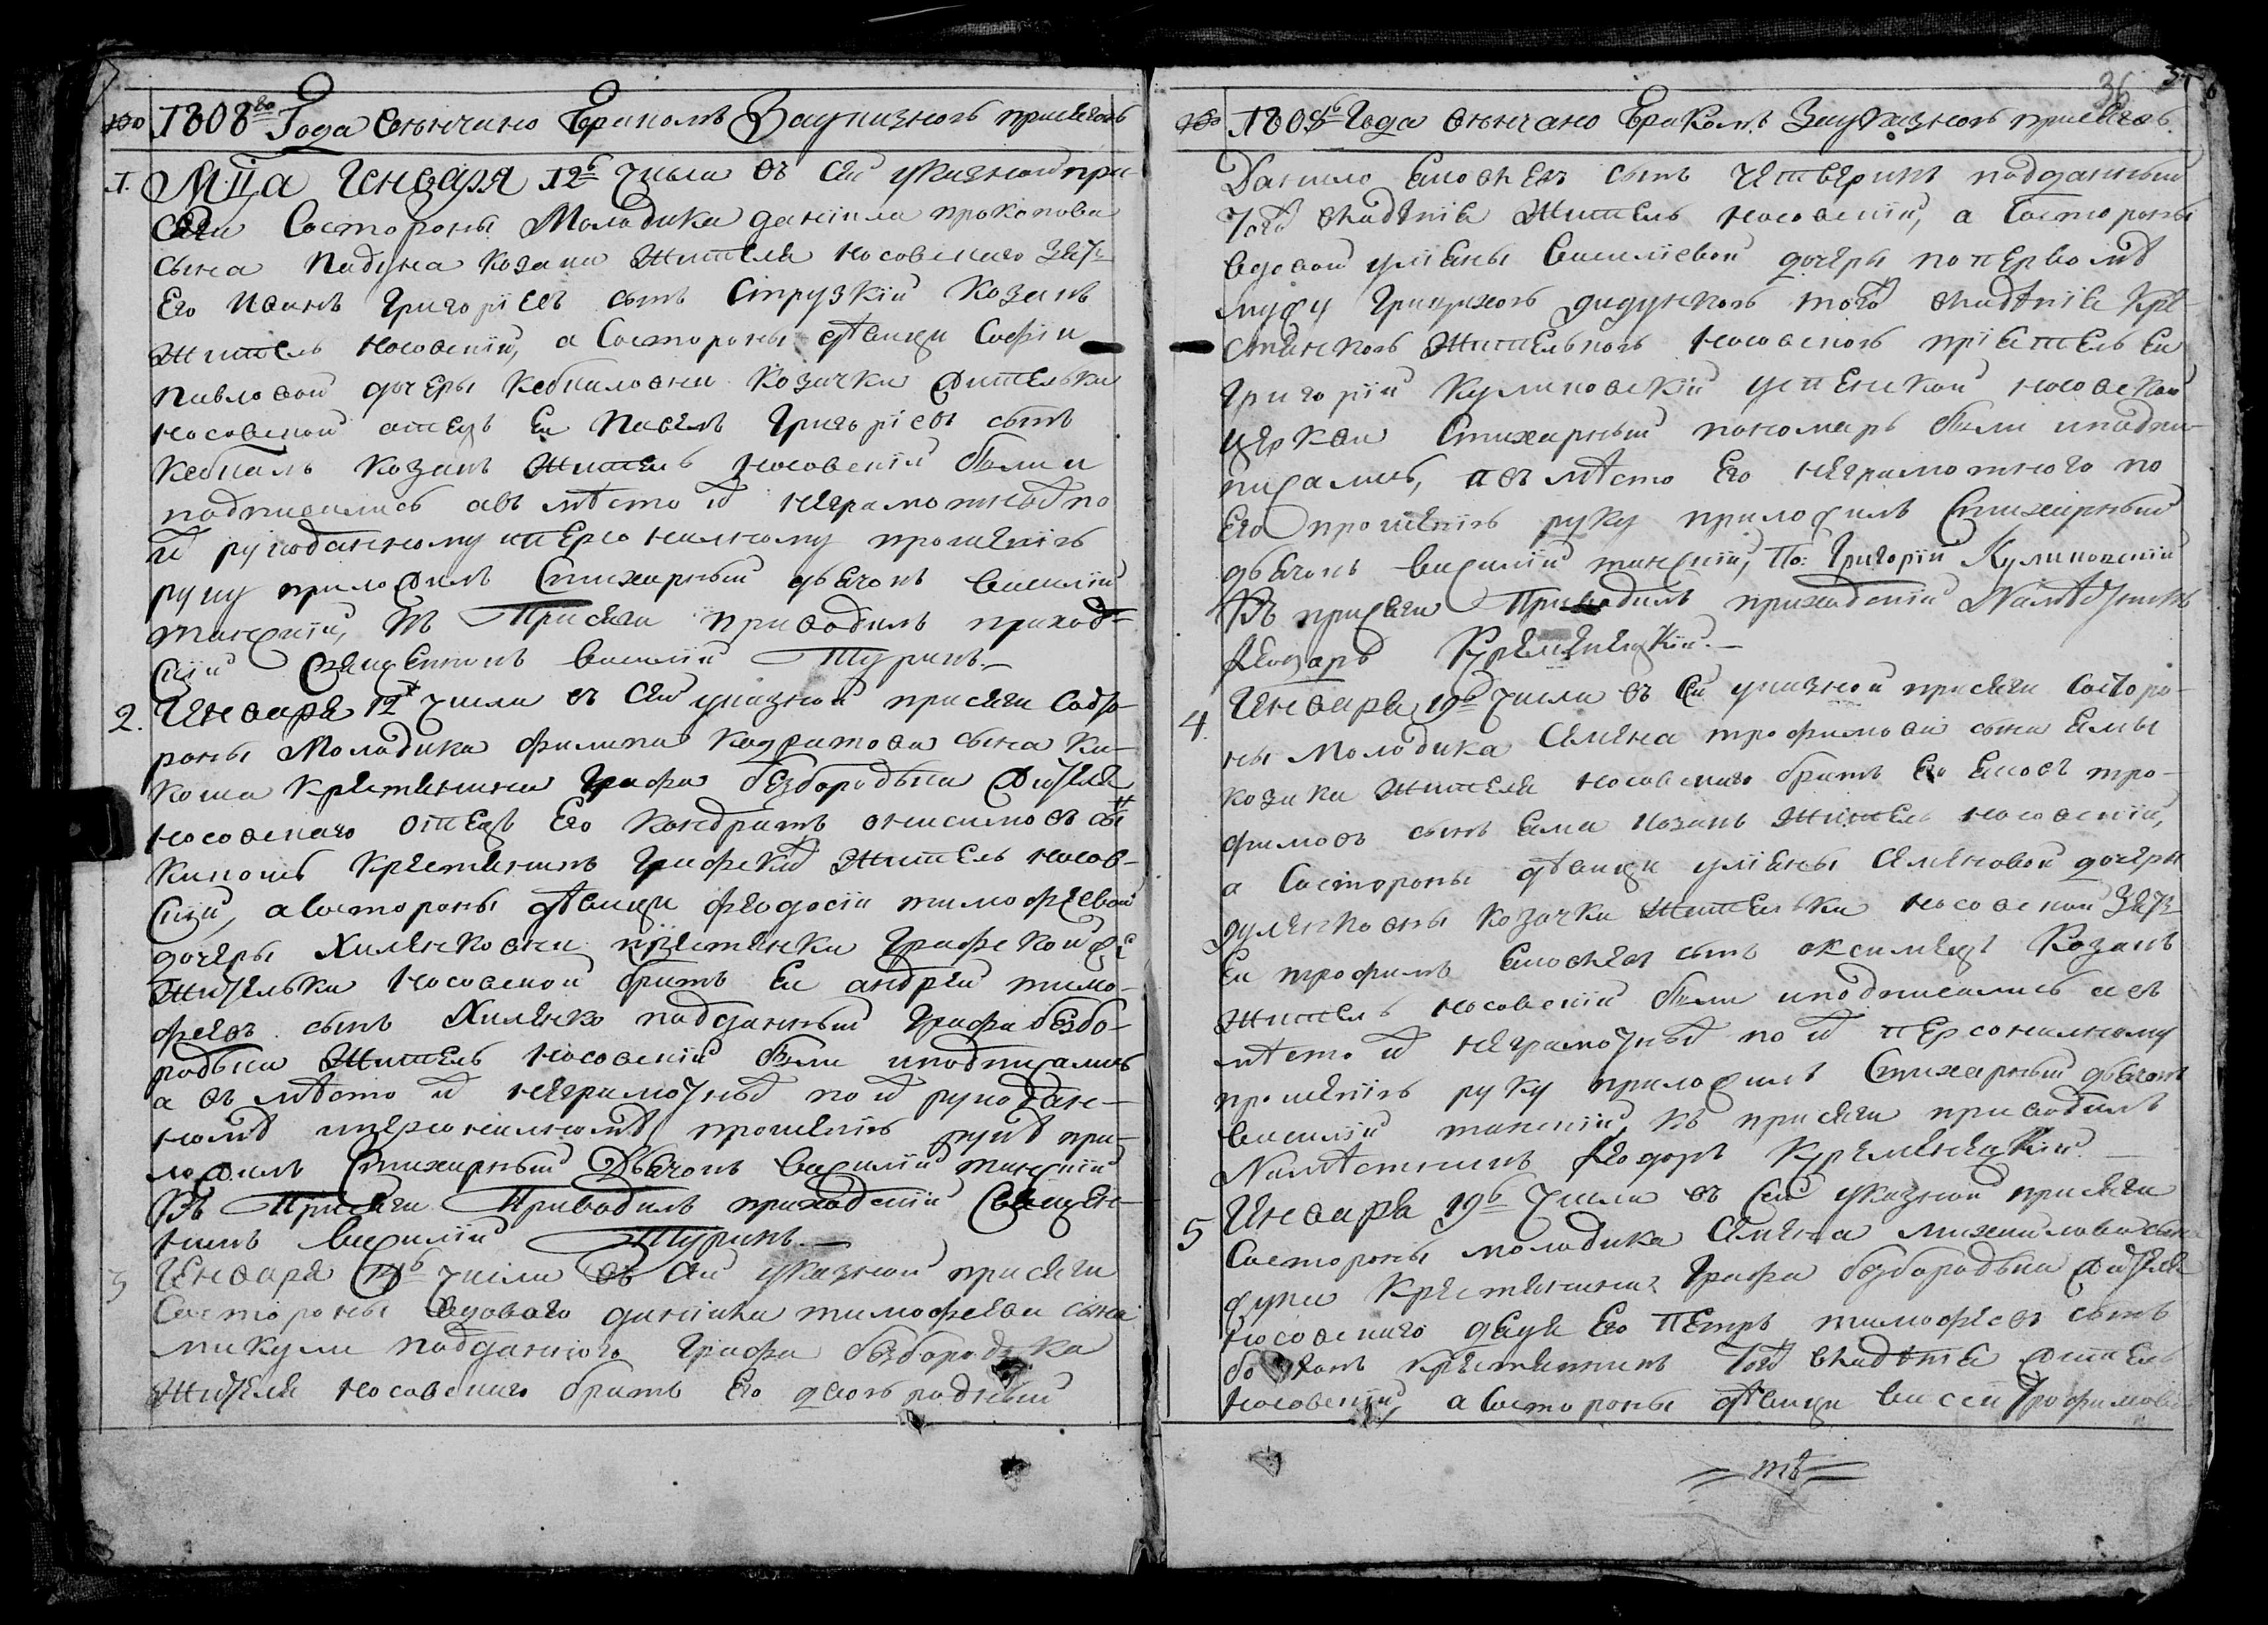 1808го Года венчано Бракомъ Зауказною присягою
1. Мца Генваря 12ь числа въ сей указной при
сяги Состороны Молодика данiила прокопова
сына падуна козака жителя носовского зять
Его иванъ григорiевъ сынъ Струзкiй козакъ
житель носовскiй, а Состороны дѣвици Софiи
павловой дочеры Кебкаловни козачки жительки
носовской отецъ Ея павелъ григорiевъ сынъ
Кебкалъ козакъ житель носовскiй были и
подписались авъ мѣсто неграмотных по
их рукоданному и персоналному прошенiю
руку приложилъ Стихарный дьячокъ василiй
танскiй, Къ Присяги приводилъ приход
скiй священникъ василiй Туринъ.
2. Генваря 12 числа въ сей указной присяги Состо
роны Молодика филипа кодратова сына Ки
коша крестянина Графа безбородька жителя
носовского отецъ Его кондратъ онисимовъ сынъ
Кикошъ крестянинъ графскiй житель носов
скiй, а Состороны дѣвици феодосiи тимофеевой
дочеры Хиленковни крестянки графской
жительки носовской братъ Ея андрей тимо
феевъ сынъ Хиленко подданный Графа безбо
родька житель носовскiй были иподписались
а въ мѣсто их неграмотных по их рукодан
ному иперсоналному прошенiю руку при
ложилъ Стихарный Дьячокъ василiй танскiй
Къ Присяги Приводилъ приходскiй Священ
никъ василiй Туринъ.
3 Генваря числа въ сей указной присяги
Состороны вдового данiила тимофеева сына
микули подданного Графа безбородька
жителя носовского братъ Его двоюродный
36
1808ь Года венчано Бракомъ Зауказною присягою
Данило сынъ Четверикъ подданный
того житель носовскiй, а Состороны
вдовой улiяны василiевой дочеры попервому
мужу дидунковъ того кре
стянковъ жительковъ носовсковъ прiятель Ея
григорiй Куликовскiй успенской носовской
церкви Стихарный пономарь были иподпи
сались, а въ мѣсто Его неграмотного по
Его прошенiю руку приложилъ Стихарный
дьячокъ василiй танскiй, По: Григорiй Куликовскiй
Къ присяги Приводилъ приходскiй Намѣстникъ
феодоръ Кременецкiй.
4. Генваря 19ь числа въ сей указной присяги Состоро
ны Молодика Семена трофимова сына Емы
козака жителя носовского братъ Его тро
фимовъ сынъ Ема козакъ житель носовскiй,
а Состороны дѣвици улiяны Семеновой дочеры
дуленковны козачки жительки носовской зять
Ея трофимъ сынъ козакъ
житель носовскiй были иподписались а въ
мѣсто их неграмотных по их персоналному
прошенiю руку приложилъ Стихарный дьячокъ
василiй танскiй, Къ присяги приводилъ
Намѣстникъ феодоръ Кременецкiй.
5 Генваря 19ь числа въ сей указной присяги
Состороны молодика Семена михайлова сына
крестянина Графа безбородька жителя
носовского дядя Его Петръ тимофеевъ сынъ
крестянинъ того житель
носовскiй, а Состороны дѣвици вассы Трофимовой